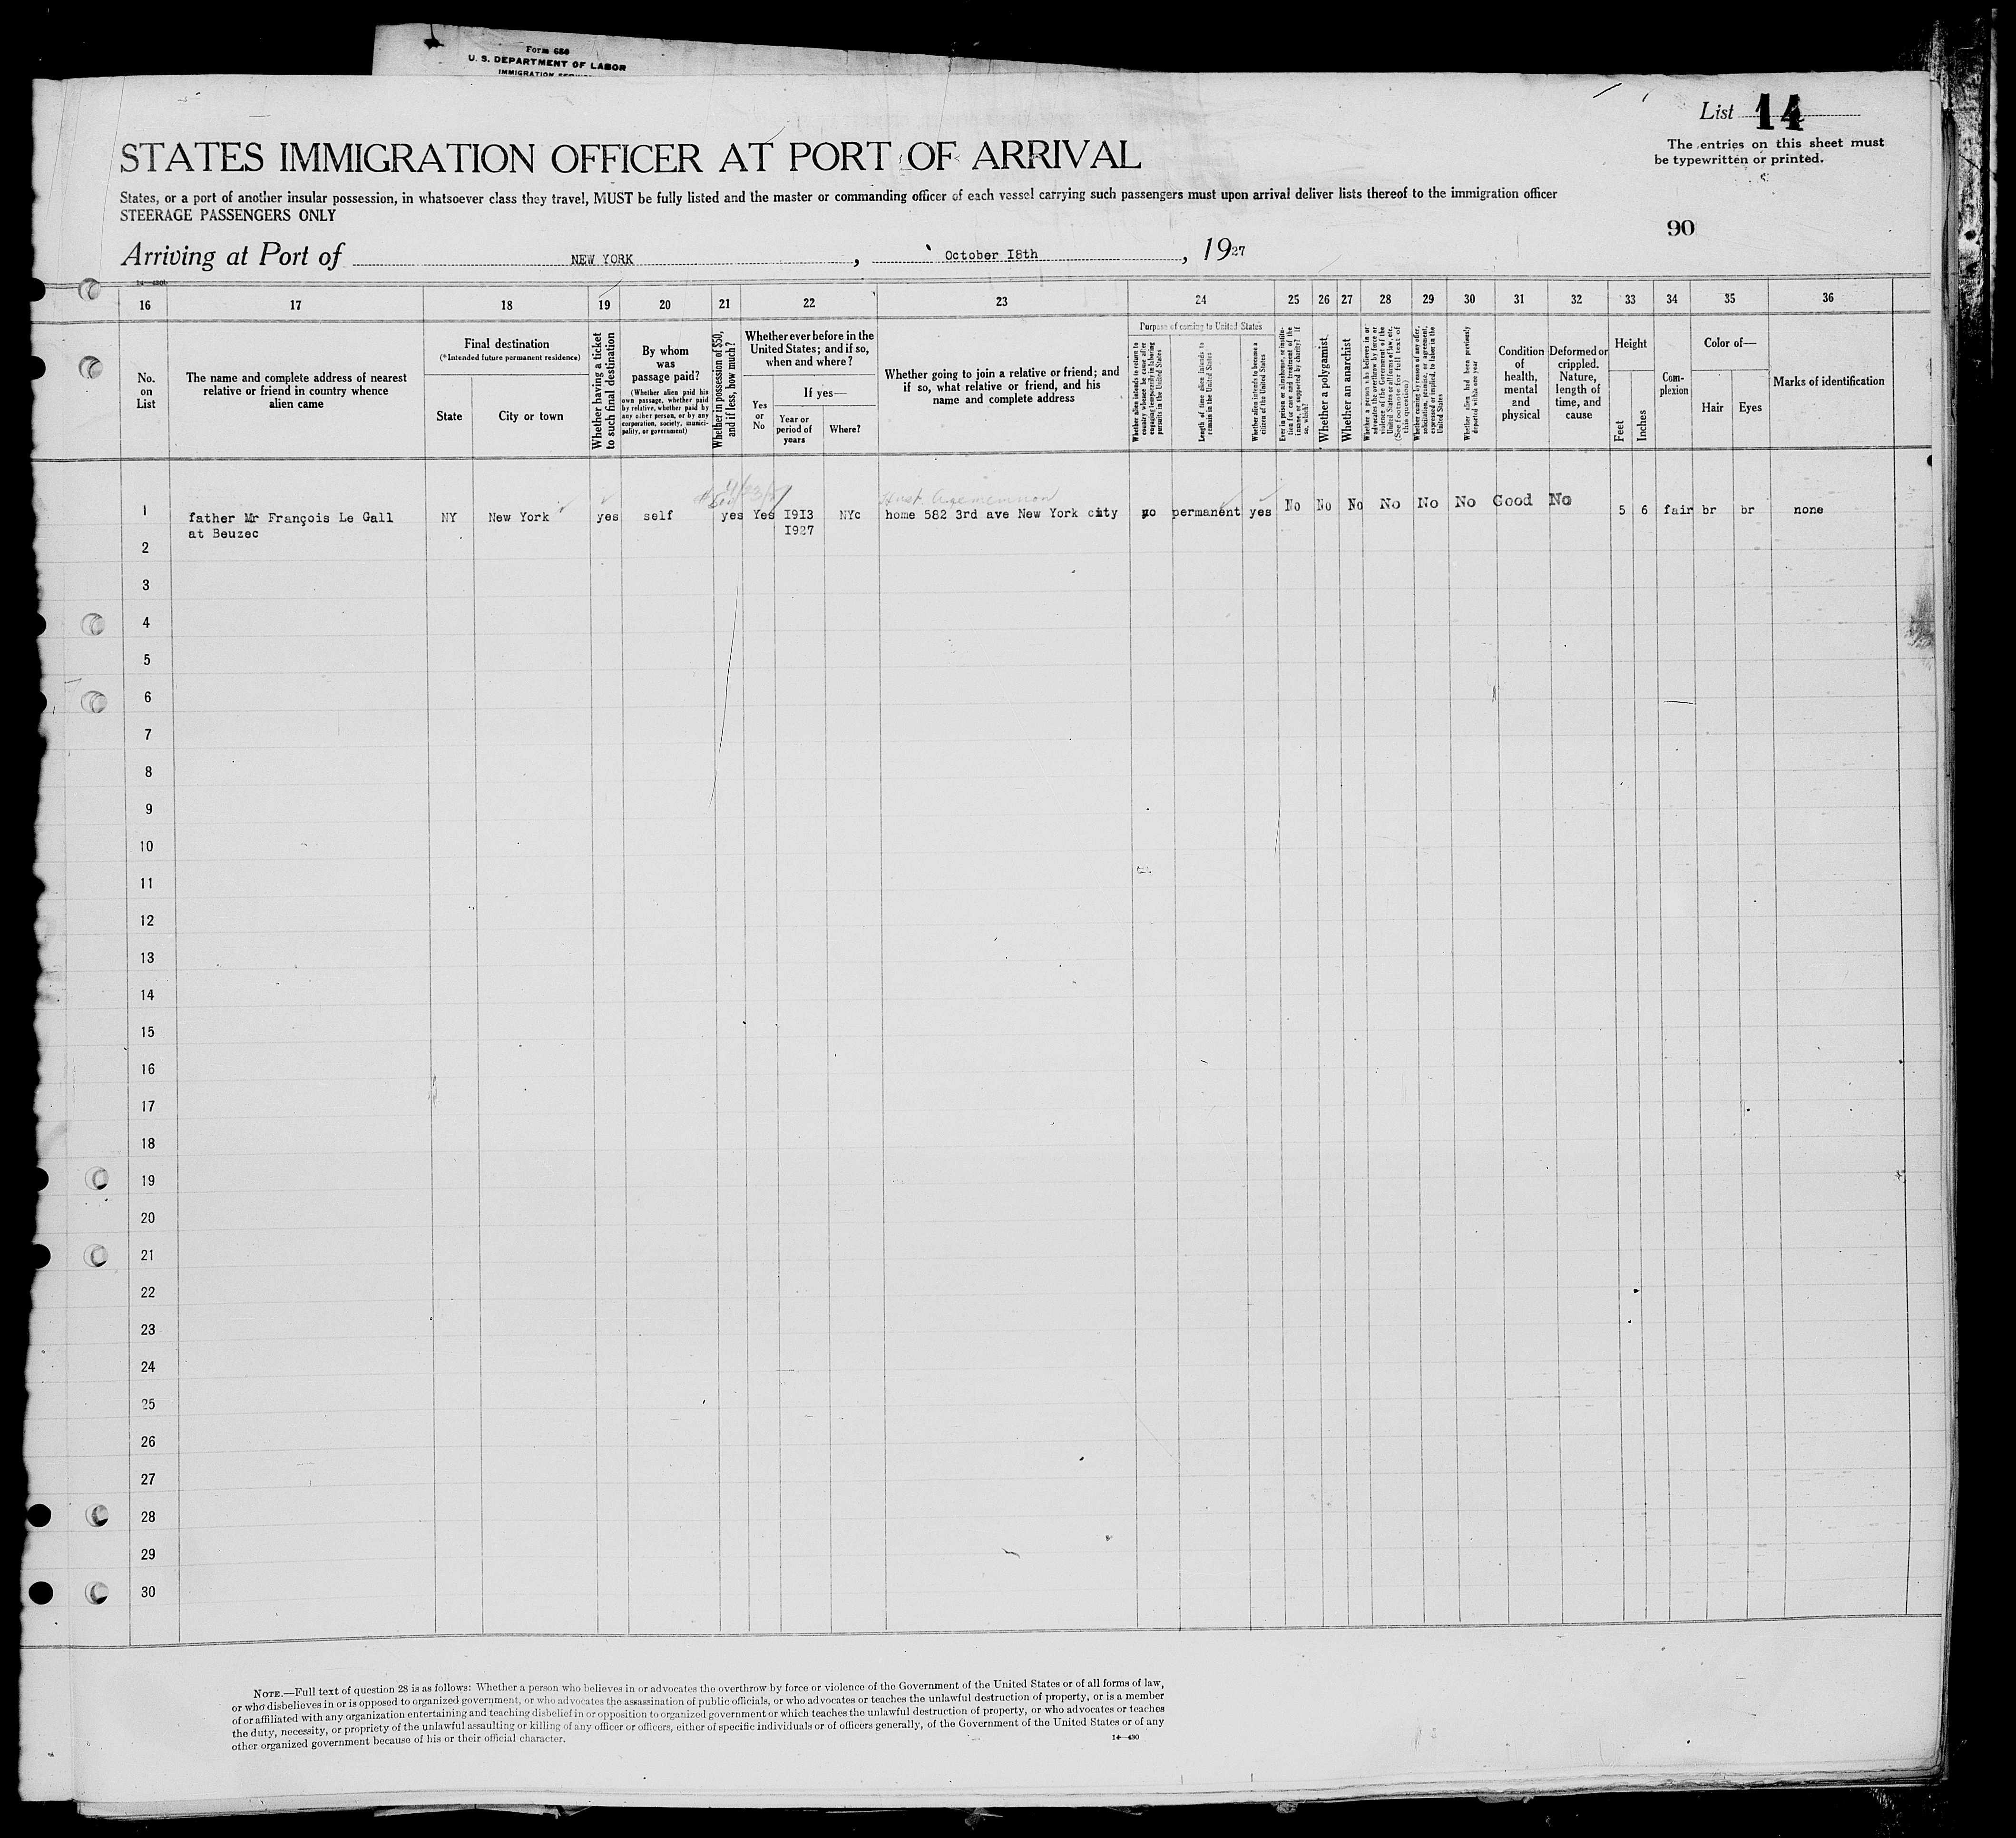 Form 680
U. S. DEPARTMENT OF LABOR
IMMIGRATION SERVICE
List 14
The entries on this sheet must
be typewritten or printed.
STATES IMMIGRATION OFFICER AT PORT OF ARRIVAL
States, or a port of another insular possession, in whatsoever class they travel, MUST be fully listed and the master or commanding officer of each vessel carrying such passengers must upon arrival deliver lists thereof to the immigration officer
STEERAGE PASSENGERS ONLY
90
Arriving at Port of NEW YORK, October 18th, 1927
16 17 18 19 20 21 22 23 24 25 26 27 28 29 30 31 32 33 34 35 36
No. on List
The name and complete address of nearest
relative or friend in country whence
alien came
Final destination
(*Intended future permanent residence)
State
City or town
Whether having a ticket
to such final destination
By whom
was
passage paid?
(Whether alien paid his
own passage, whether paid
by relative, whether paid by
any other person, or by any
corporation, society, munici-
pality, or government)
Whether in possession of $50,
and if less, how much?
Whether ever before in the
United States; and if so,
when and where?
Yes
or
No
If yes—
Year or
period of
years
Where?
Whether going to join a relative or friend; and
if so, what relative or friend, and his
name and complete address
Purpose of coming to United States
Whether alien intends to return to
country whence he came after
engaging temporarily in laboring
pursuits in the United States
Length of time alien intends to
remain in the United States
Whether alien intends to become a
citizen of the United States
Ever in prison or almshouse, or institu-
tion for care and treatment of the
insane, or supported by charity? If
so, which?
Whether a polygamist
Whether an anarchist
Whether a person who believes in or
advocates the overthrow by force or
violence of the Government of the
United States or all forms of law, etc.
(See footnote for full text of
this question)
Whether coming by reason of any offer,
solicitation, promise, or agreement,
expressed or implied, to labor in the
United States
Whether alien had been previously
deported within one year
Condition
of
health,
mental
and
physical
Deformed or
crippled.
Nature,
length of
time, and
cause
Height
Feet
Inches
Com-
plexion
Color of—
Hair
Eyes
Marks of identification
1 father Mr François Le Gall NY New York yes self yes Yes 1913 NYc home 582 3rd ave New York city no permanent yes No No No No No No Good No 5 6 fair br br none
at Beuzec 1927
2
3
4
5
6
7
8
9
10
11
12
13
14
15
16
17
18
19
20
21
22
23
24
25
26
27
28
29
30
NOTE.—Full text of question 28 is as follows: Whether a person who believes in or advocates the overthrow by force or violence of the Government of the United States or of all forms of law,
or who disbelieves in or is opposed to organized government, or who advocates the assassination of public officials, or who advocates or teaches the unlawful destruction of property, or is a member
of or affiliated with any organization entertaining and teaching disbelief in or opposition to organized government or which teaches the unlawful destruction of property, or who advocates or teaches
the duty, necessity, or propriety of the unlawful assaulting or killing of any officer or officers, either of specific individuals or of officers generally, of the Government of the United States or of any
other organized government because of his or their official character.
14—430